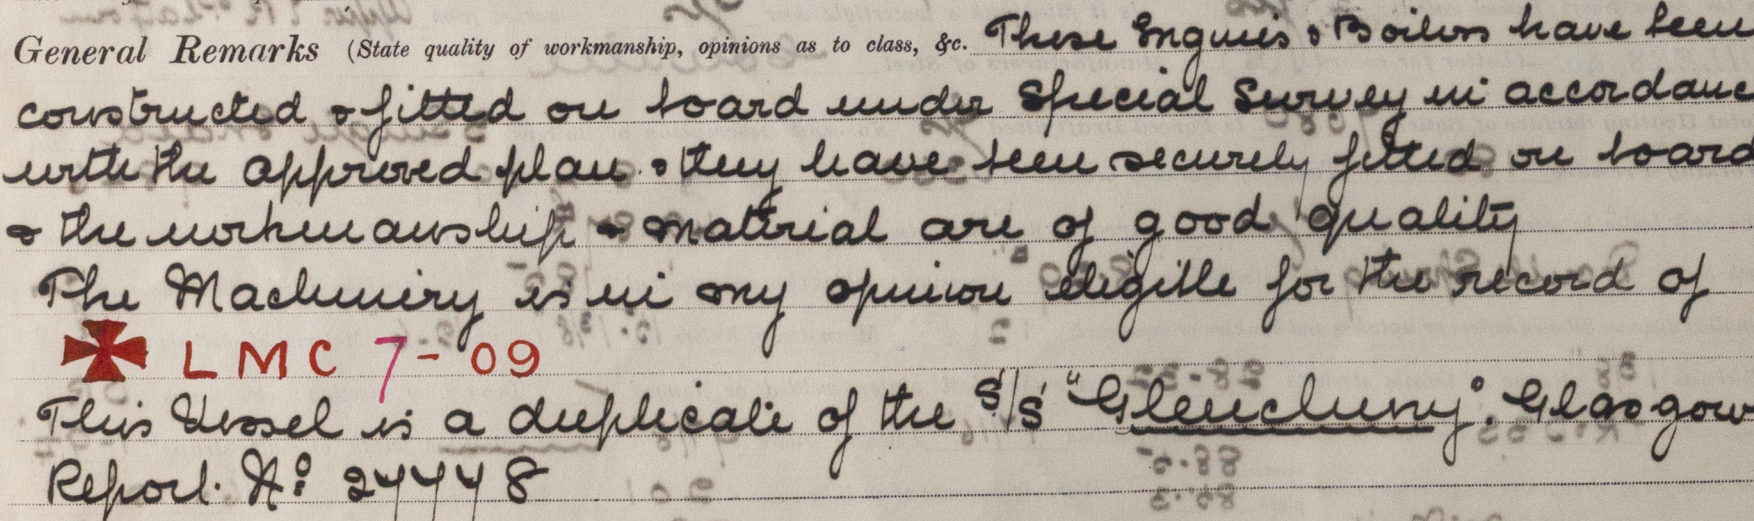 General Remarks (State quality of workmanship, opinions as to class, &c. These Engines & Boilers have been
constructed & fitted on board under Special Survey in accordanc
with the approved plan. & they have been securely fitted on board
& the workmanship & material are of good quality
The Machinery is in my opinion eligible for the record of
✠ LMC 7-09
This Vessel is a duplicate of the S/S "Glencluny". Glasgow
Report. No 27778